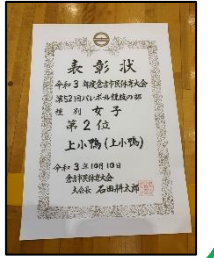 表彰状
令和3年度倉吉市民体育大会
第52回バレーボール競技の部
種別 女子
第2位
上小鴨(上小鴨)
令和3年10月10日
倉吉市民体育大会
大会長 石田耕太郎